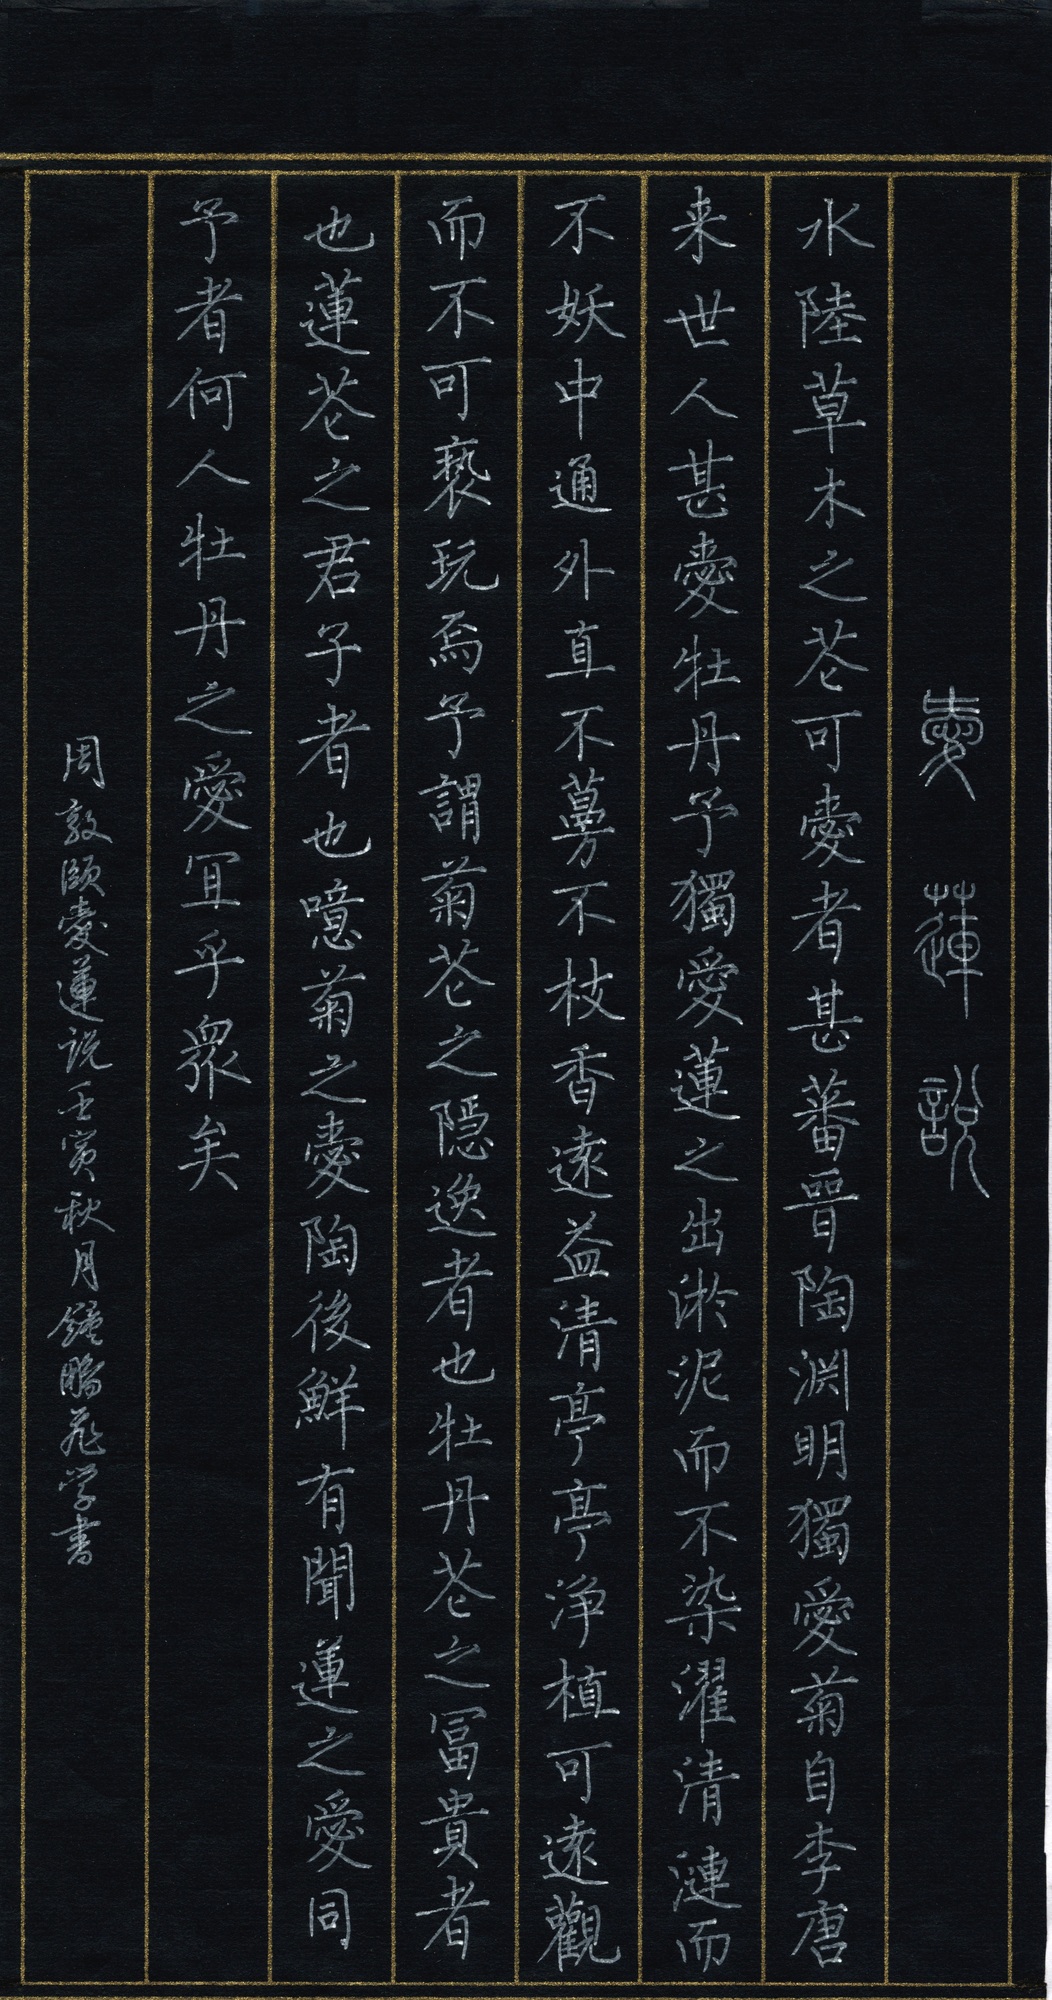 愛蓮說
水陸草木之花可愛者甚蕃晉陶渊明獨愛菊自李唐
来世人甚愛牡丹予獨愛蓮之出淤泥而不染濯清漣而
不妖中通外直不蔓不枝香遠益清亭亭淨植可遠觀
而不可褻玩焉予謂菊花之隱逸者也牡丹花之冨貴者
也蓮花之君子者也噫菊之愛陶後鮮有聞蓮之愛同
予者何人牡丹之愛宜乎眾矣
周敦頤愛蓮説壬寅秋月鐘鵬飛学書